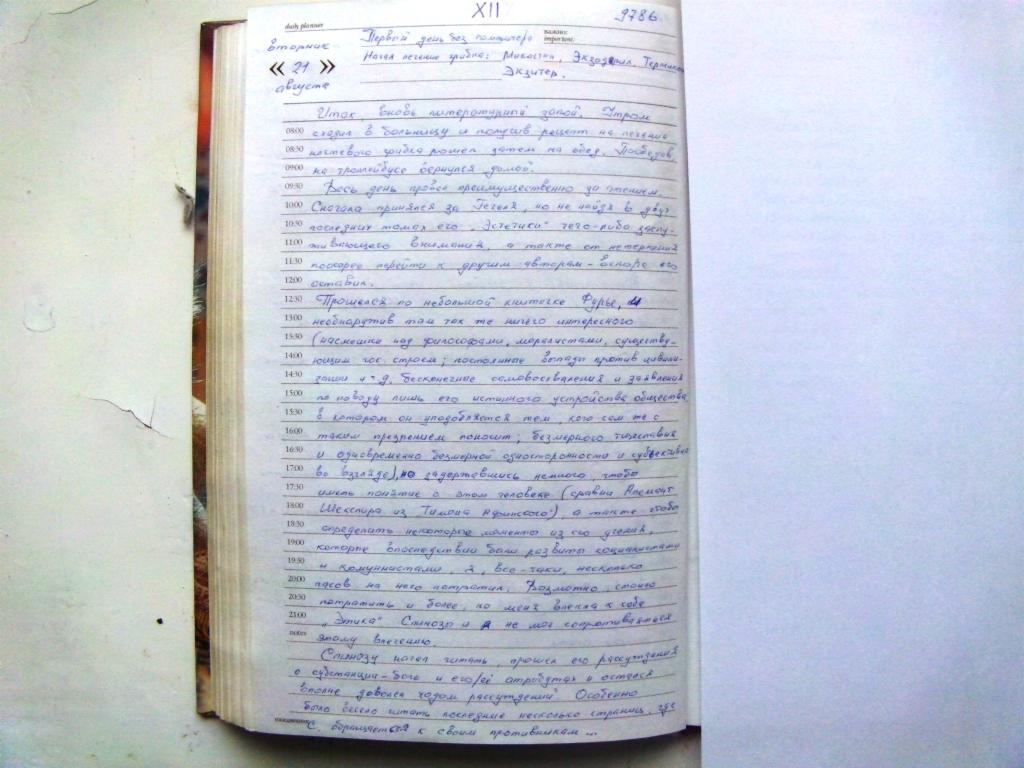 XII
9786
daily planner
важно:
important:
вторник
« 21 »
августа
Первый день без
Начал лечение грибка: Микостин, Экзодерил, Термикон
Экзитер.
Итак вновь литературный запой. Утром
08:00 сходил в больницу и получив рецепт на лечение
08:30 ногтевого грибка пошел затем на обед. Пообедав,
09:00 на троллейбусе вернулся домой.
09:30 Весь день провёл преимущественно за чтением.
10:00 Сначала принялся за Гегеля, но не найдя в двух
10:30 последних томах его „Эстетики" чего-либо заслу-
11:00 живающего внимания, а также от нетерпения
11:30 поскорее перейти к другим авторам - вскоре его
12:00 оставил.
12:30 Прошелся по небольшой книжечке Фурье, и
13:00 необнаружив там так же ничего интересного
13:30 (насмешки над философами, моралистами, существу-
14:00 ющим гос. строем; постоянные выпады против цивили-
14:30 зации и т.д. бесконечные самовосхваления и заявления
15:00 по поводу лишь его истинного устройства общества
15:30 в котором он уподобляется тем, кого сам же с
16:00 таким презрением поносит; безмерного тщеславия
16:30 и одновременно безмерной односторонности и
17:00 во взгляде), но задержавшись немного чтобы
17:30 иметь понятие о этом человеке (сравни Апемант
18:00 Шекспира из Тимона Афинского), а также чтобы
18:30 определить некоторые моменты из его учения,
19:00 которые впоследствии были развиты социалистами
19:30 и коммунистами, я, все-таки, несколько
20:00 часов на него потратил. Возможно, стоило
20:30 потратить и более, но меня влекла к себе
21:00 „Этика" Спинозы и я не мог сопротивляться
notes этому влечению.
Спинозу начал читать, прошел его рассуждения
о субстанции-боге и его/её атрибутах и остался
вполне доволен ходом рассуждений. Особенно
было весело читать последние несколько страниц, где
С. обращается к своим противникам ...